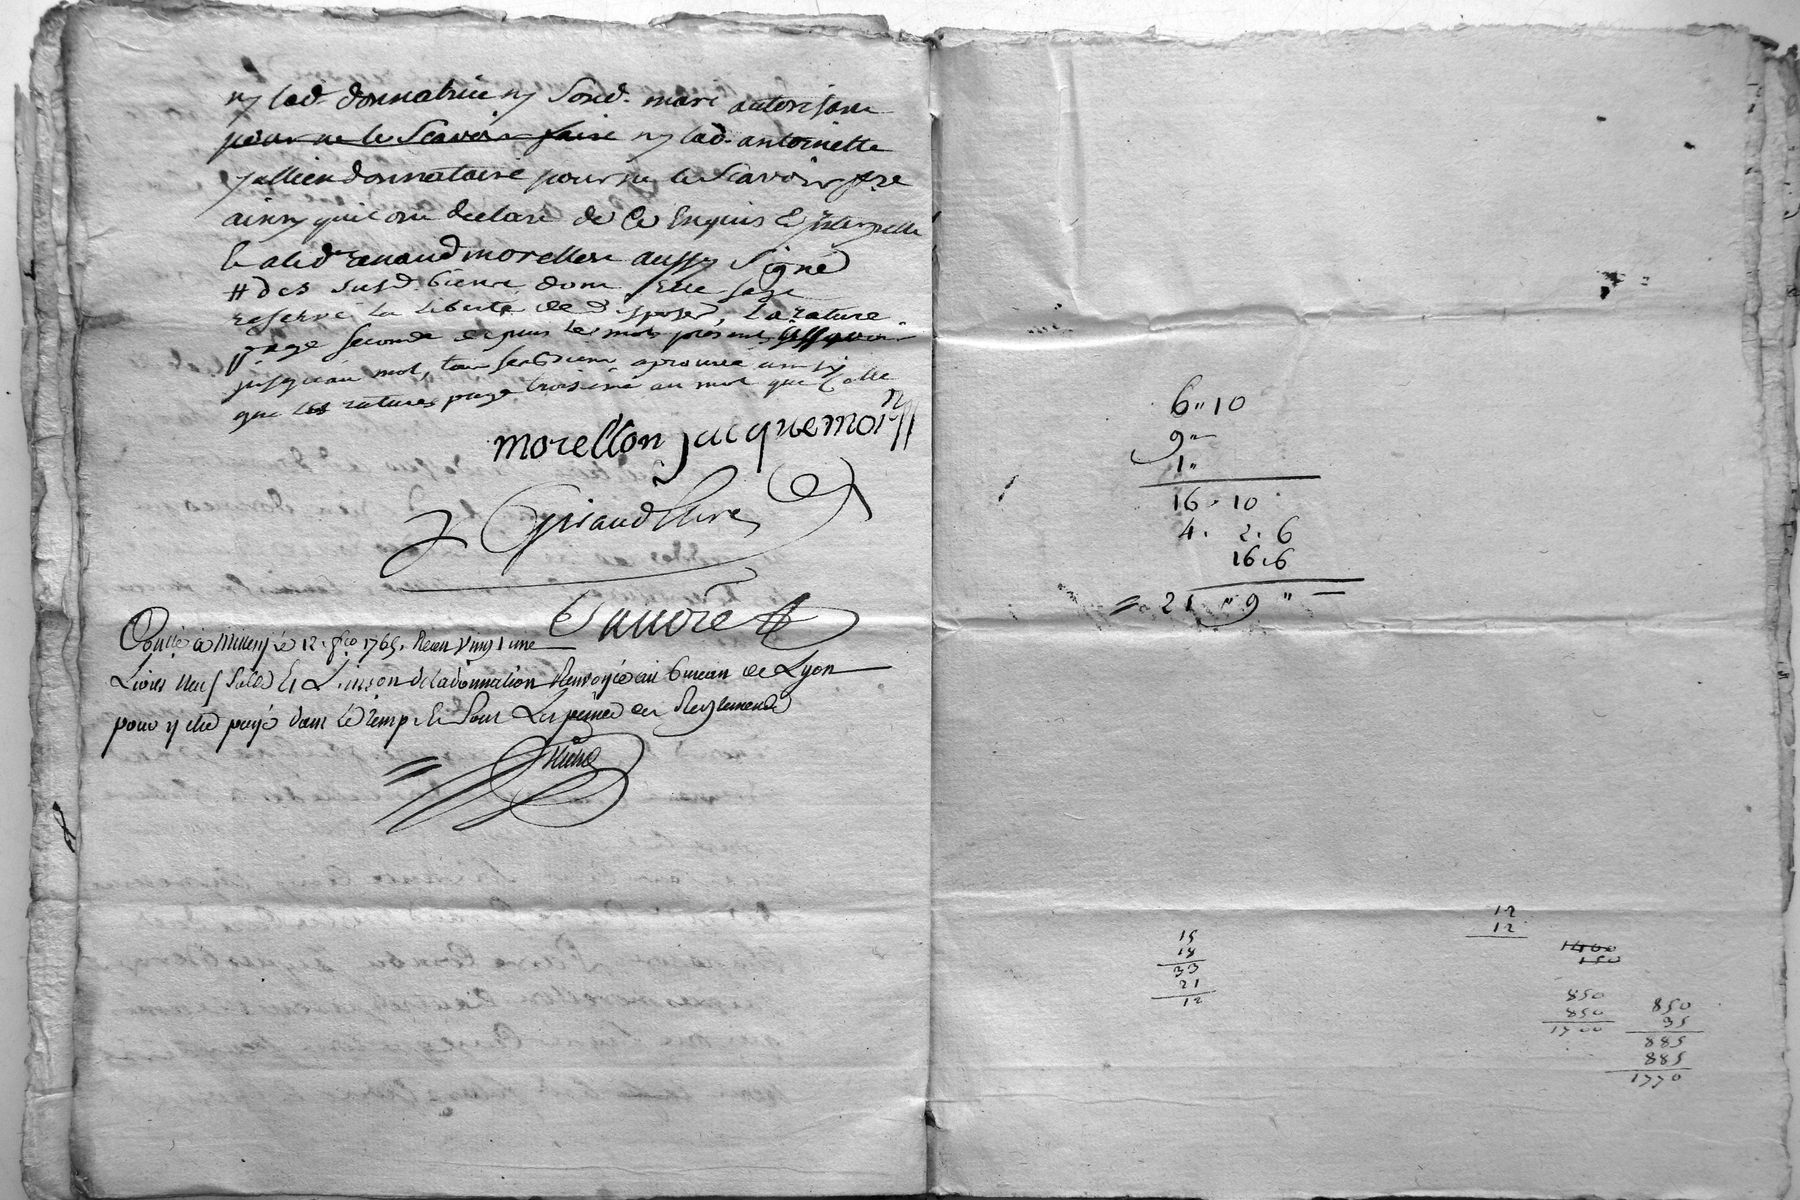 ny lad. donnatrice ny sond. mari autorisant
pour ne le scavoir faire ny lad. antoinette
jullien donnataire pour ne le scavoir fre
ainsy quil ont declaré de ce enquis et interpellé
renaud morellon aussy signé
# des susd. biens dont elle sest
reservé la liberté de disposer, la rature
page seconde depuis les mots presents
jusqueau mot, aprouvée
que les ratures page troisieme au mot que celle
morellon jacquemon
Giraud Clerc
Controllé à Millery le 12. 1765. Reçu vingt une
Livres neuf sols et L'insôn de la donnation Renvoyée au bureau de Lyon
pour y etre payé dans le temps et sous Les peines des Reglements
6 " 10
9 "
1 "
16 . 10
4 . 2 . 6
16 . 6
21 " 9 "
15
18
33
21
12
12
12
1400
150
850
850
1700
850
35
885
885
1770